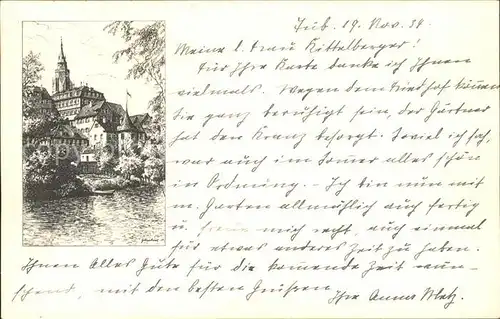 Tüb. 19. Nov. 38.
Meine l. Frau Kittelberger!
Für Ihre Karte danke ich Ihnen
vielmals. Wegen dem Friedhof können
Sie ganz beruhigt sein, der Gärtner
hat den Kranz besorgt. Soviel ich sah,
war auch im Somer alles schön
in Ordnung. - Ich bin nun mit
m. Garten allmählich auch fertig
u. freue mich recht, auch einmal
für etwas anderes Zeit zu haben.
Ihnen Alles Gute für die komende Zeit wün-
schend, mit den besten Grüßen
Ihre Anna Metz.